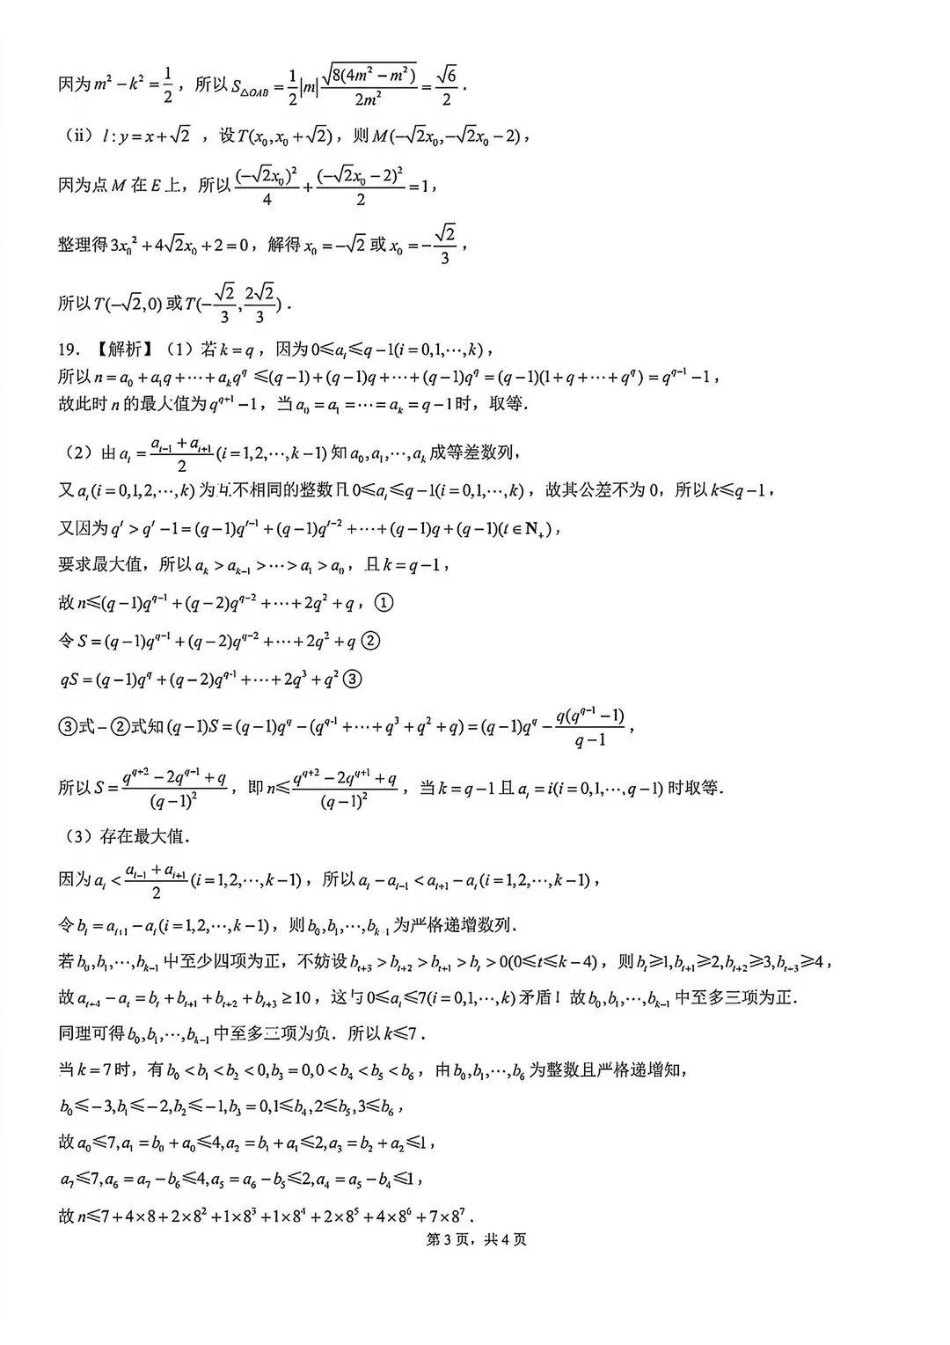 因为m²-k²=1/2，所以S△OAB=1/2|m|√(8(4m²-m²))/(2m²)=√6/2．
（ii）l:y=x+√2 ，设T(x₀,x₀+√2)，则M(-√2x₀,-√2x₀-2)，
因为点M在E上，所以(-√2x₀)²/4+(-√2x₀-2)²/2=1，
整理得3x₀²+4√2x₀+2=0，解得x₀=-√2或x₀=-√2/3，
所以T(-√2,0)或T(-√2/3,2√2/3)．
19．【解析】（1）若k=q，因为0≤aᵢ≤q-1(i=0,1,⋯,k)，
所以n=a₀+a₁q+⋯+aₖq^q≤(q-1)+(q-1)q+⋯+(q-1)q^q=(q-1)(1+q+⋯+q^q)=q^(q+1)-1，
故此时n的最大值为q^(q+1)-1，当a₀=a₁=⋯=aₖ=q-1时，取等．
（2）由aᵢ=(aᵢ₋₁+aᵢ₊₁)/2(i=1,2,⋯,k-1)知a₀,a₁,⋯,aₖ成等差数列，
又aᵢ(i=0,1,2,⋯,k)为互不相同的整数且0≤aᵢ≤q-1(i=0,1,⋯,k)，故其公差不为0，所以k≤q-1，
又因为q^t>q^t-1=(q-1)q^(t-1)+(q-1)q^(t-2)+⋯+(q-1)q+(q-1)(t∈N₊)，
要求最大值，所以aₖ>aₖ₋₁>⋯>a₁>a₀，且k=q-1，
故n≤(q-1)q^(q-1)+(q-2)q^(q-2)+⋯+2q²+q，①
令S=(q-1)q^(q-1)+(q-2)q^(q-2)+⋯+2q²+q②
qS=(q-1)q^q+(q-2)q^(q-1)+⋯+2q³+q²③
③式-②式知(q-1)S=(q-1)q^q-(q^(q-1)+⋯+q³+q²+q)=(q-1)q^q-q(q^(q-1)-1)/(q-1)，
所以S=(q^(q+2)-2q^(q+1)+q)/(q-1)²，即n≤(q^(q+2)-2q^(q+1)+q)/(q-1)²，当k=q-1且aᵢ=i(i=0,1,⋯,q-1)时取等．
（3）存在最大值．
因为aᵢ<(aᵢ₋₁+aᵢ₊₁)/2(i=1,2,⋯,k-1)，所以aᵢ-aᵢ₋₁<aᵢ₊₁-aᵢ(i=1,2,⋯,k-1)，
令bᵢ=aᵢ₊₁-aᵢ(i=1,2,⋯,k-1)，则b₀,b₁,⋯,bₖ₋₁为严格递增数列．
若b₀,b₁,⋯,bₖ₋₁中至少四项为正，不妨设bₜ₊₃>bₜ₊₂>bₜ₊₁>bₜ>0(0≤t≤k-4)，则bₜ≥1,bₜ₊₁≥2,bₜ₊₂≥3,bₜ₊₃≥4，
故aₜ₊₄-aₜ=bₜ+bₜ₊₁+bₜ₊₂+bₜ₊₃≥10，这与0≤aᵢ≤7(i=0,1,⋯,k)矛盾！故b₀,b₁,⋯,bₖ₋₁中至多三项为正．
同理可得b₀,b₁,⋯,bₖ₋₁中至多三项为负．所以k≤7．
当k=7时，有b₀<b₁<b₂<0,b₃=0,0<b₄<b₅<b₆，由b₀,b₁,⋯,b₆为整数且严格递增知，
b₀≤-3,b₁≤-2,b₂≤-1,b₃=0,1≤b₄,2≤b₅,3≤b₆，
故a₀≤7,a₁=b₀+a₀≤4,a₂=b₁+a₁≤2,a₃=b₂+a₂≤1，
a₇≤7,a₆=a₇-b₆≤4,a₅=a₆-b₅≤2,a₄=a₅-b₄≤1，
故n≤7+4×8+2×8²+1×8³+1×8⁴+2×8⁵+4×8⁶+7×8⁷．
第3页，共4页